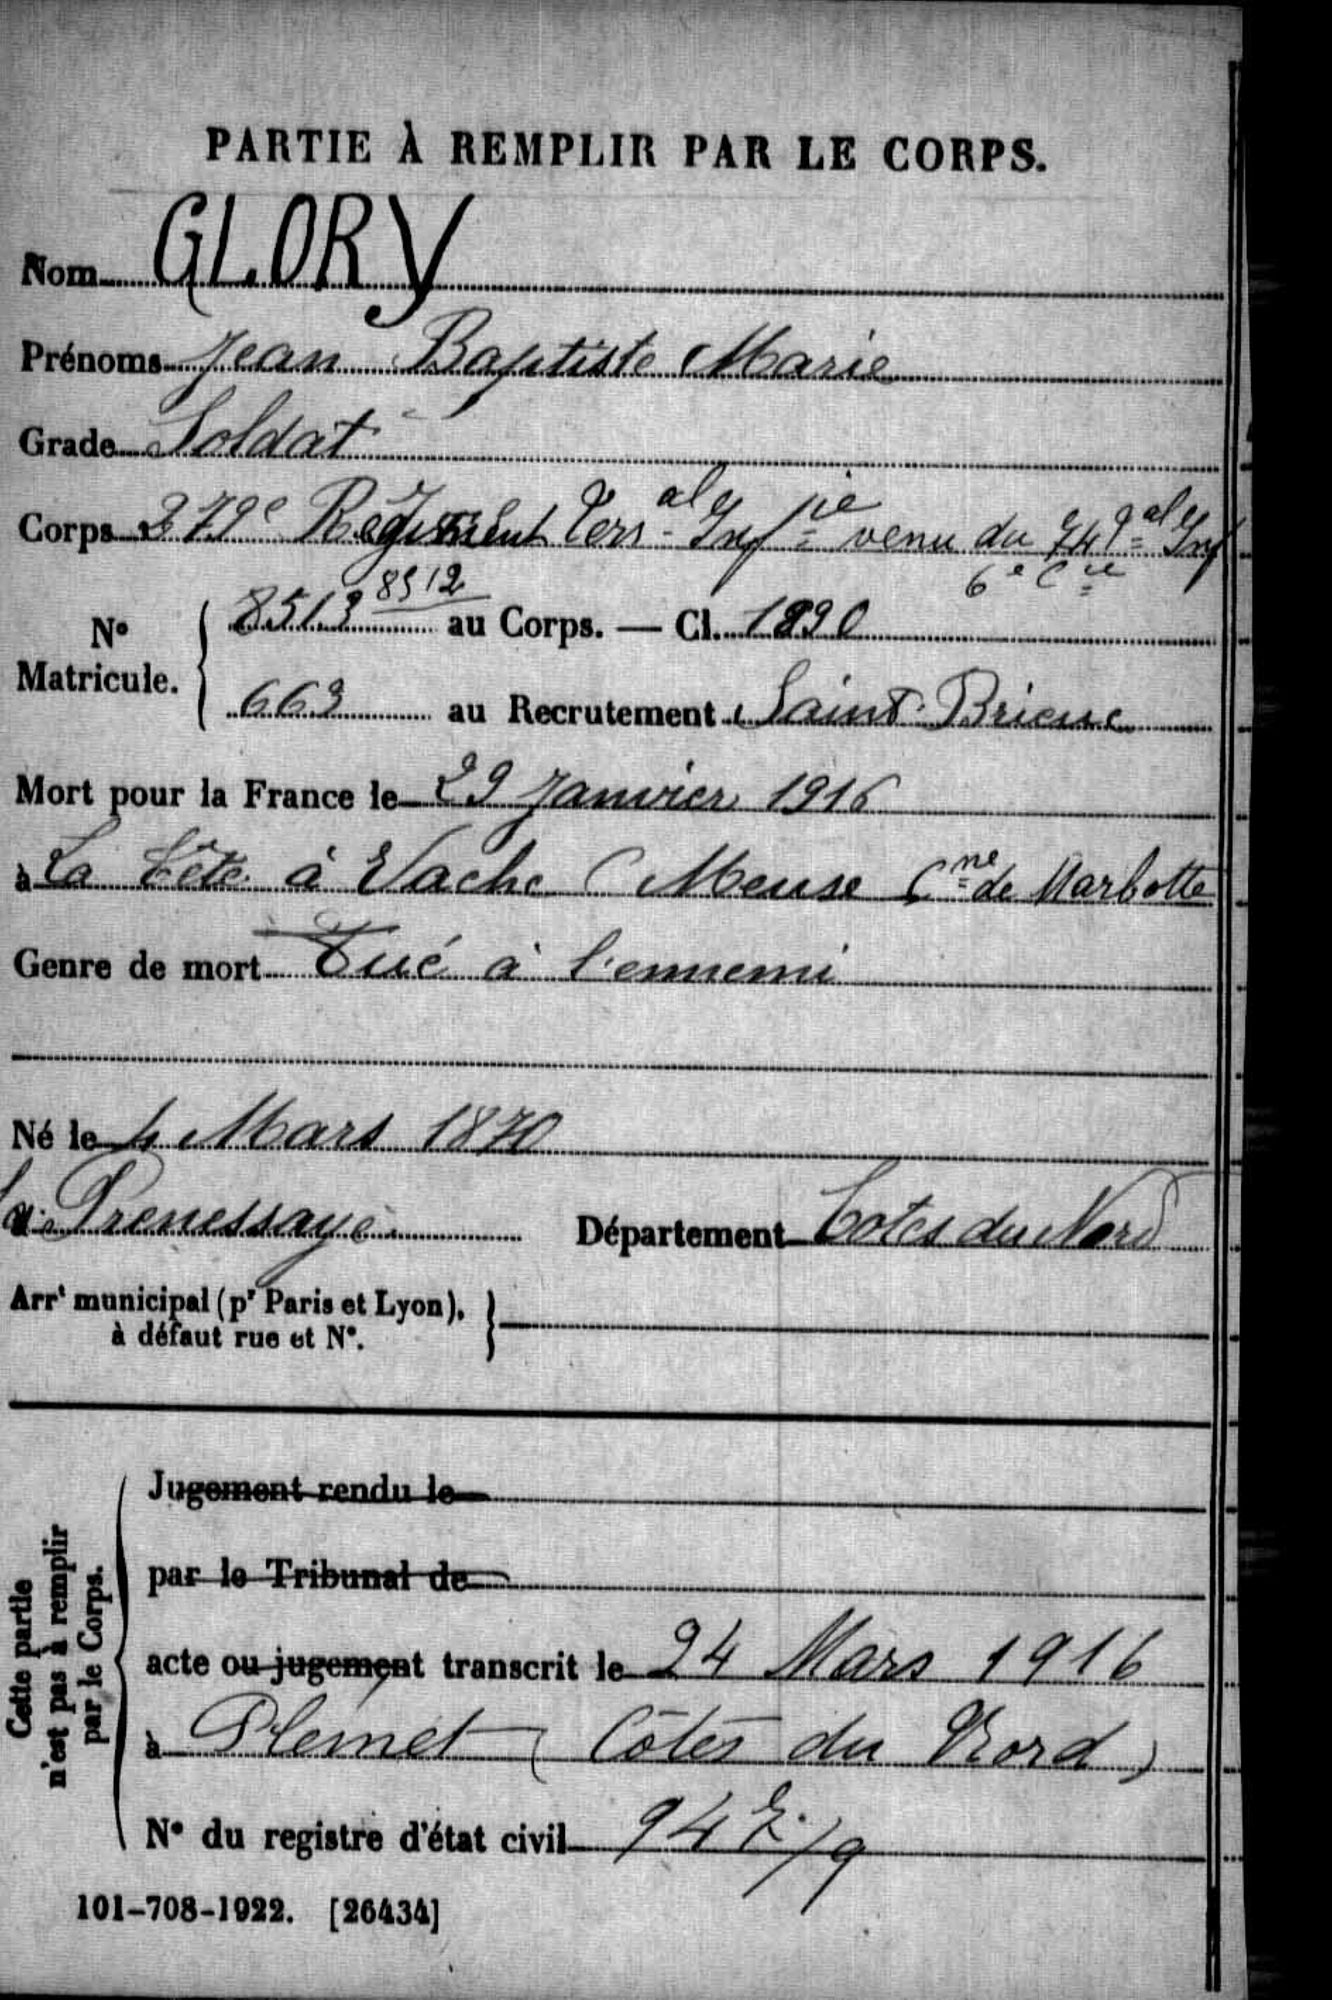 PARTIE À REMPLIR PAR LE CORPS.
Nom GLORY
Prénoms Jean Baptiste Marie
Grade Soldat
Corps 279e Régiment Ters al Inf ie venu du 74 Inf
6e Cie
8512
N° Matricule. 8513 au Corps. — Cl. 1890
663 au Recrutement Saint-Brieuc
Mort pour la France le 29 Janvier 1916
à La Tête à Vache (Meuse Cne de Marbotte
Genre de mort Tué à l'ennemi
Né le 4 Mars 1870
La Prenessaye Département Cotes du Nord
Arrt municipal (pr Paris et Lyon),
à défaut rue et N°.
Cette partie
n'est pas à remplir
par le Corps.
Jugement rendu le
par le Tribunal de
acte ou jugement transcrit le 24 Mars 1916
à Plemet (Côtes du Nord)
N° du registre d'état civil
101-708-1922. [26434]